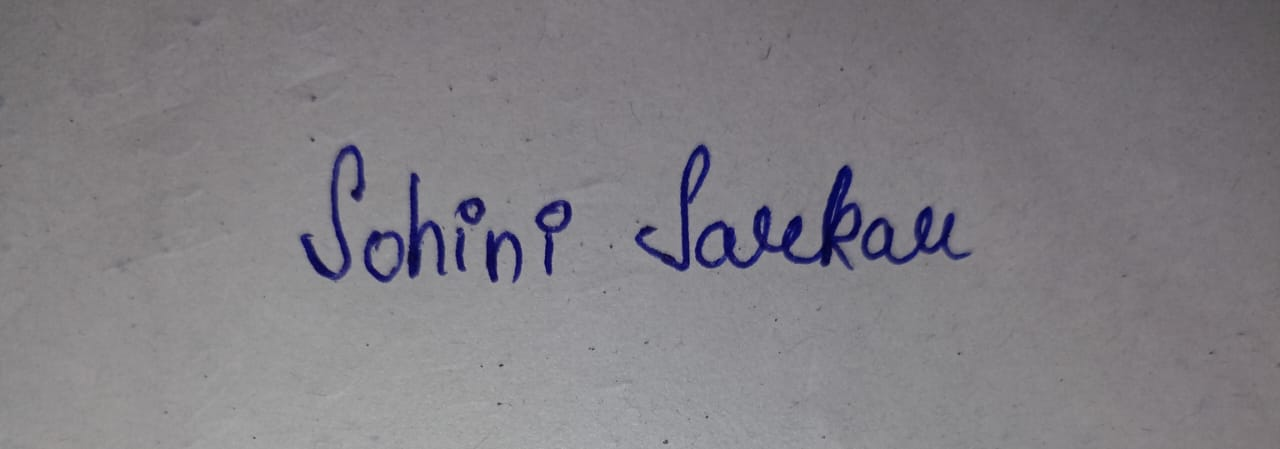 Sohini Sarkar